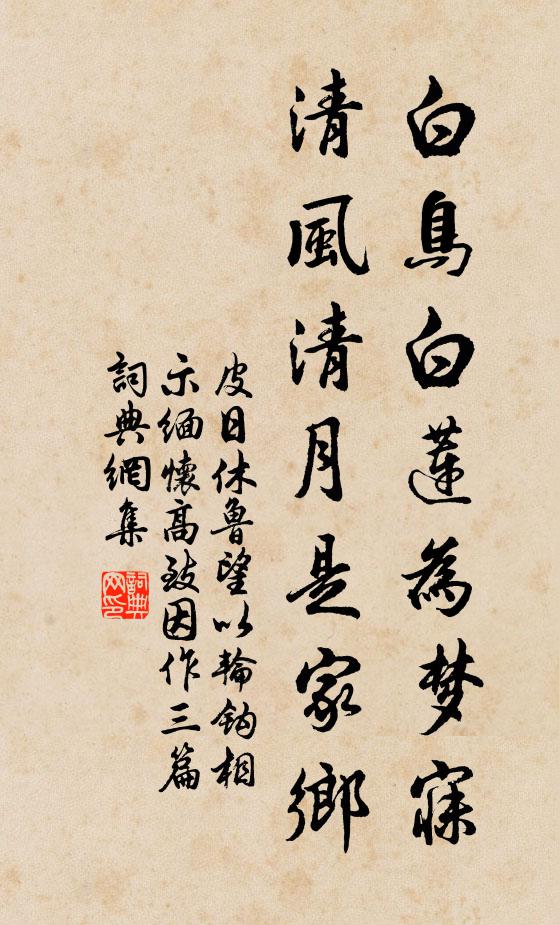 白鳥白蓮為梦寐
清風清月是家鄉
皮日休魯望以輪鈎相
示緬懷高致因作三篇
詞典網集
詞典
网印